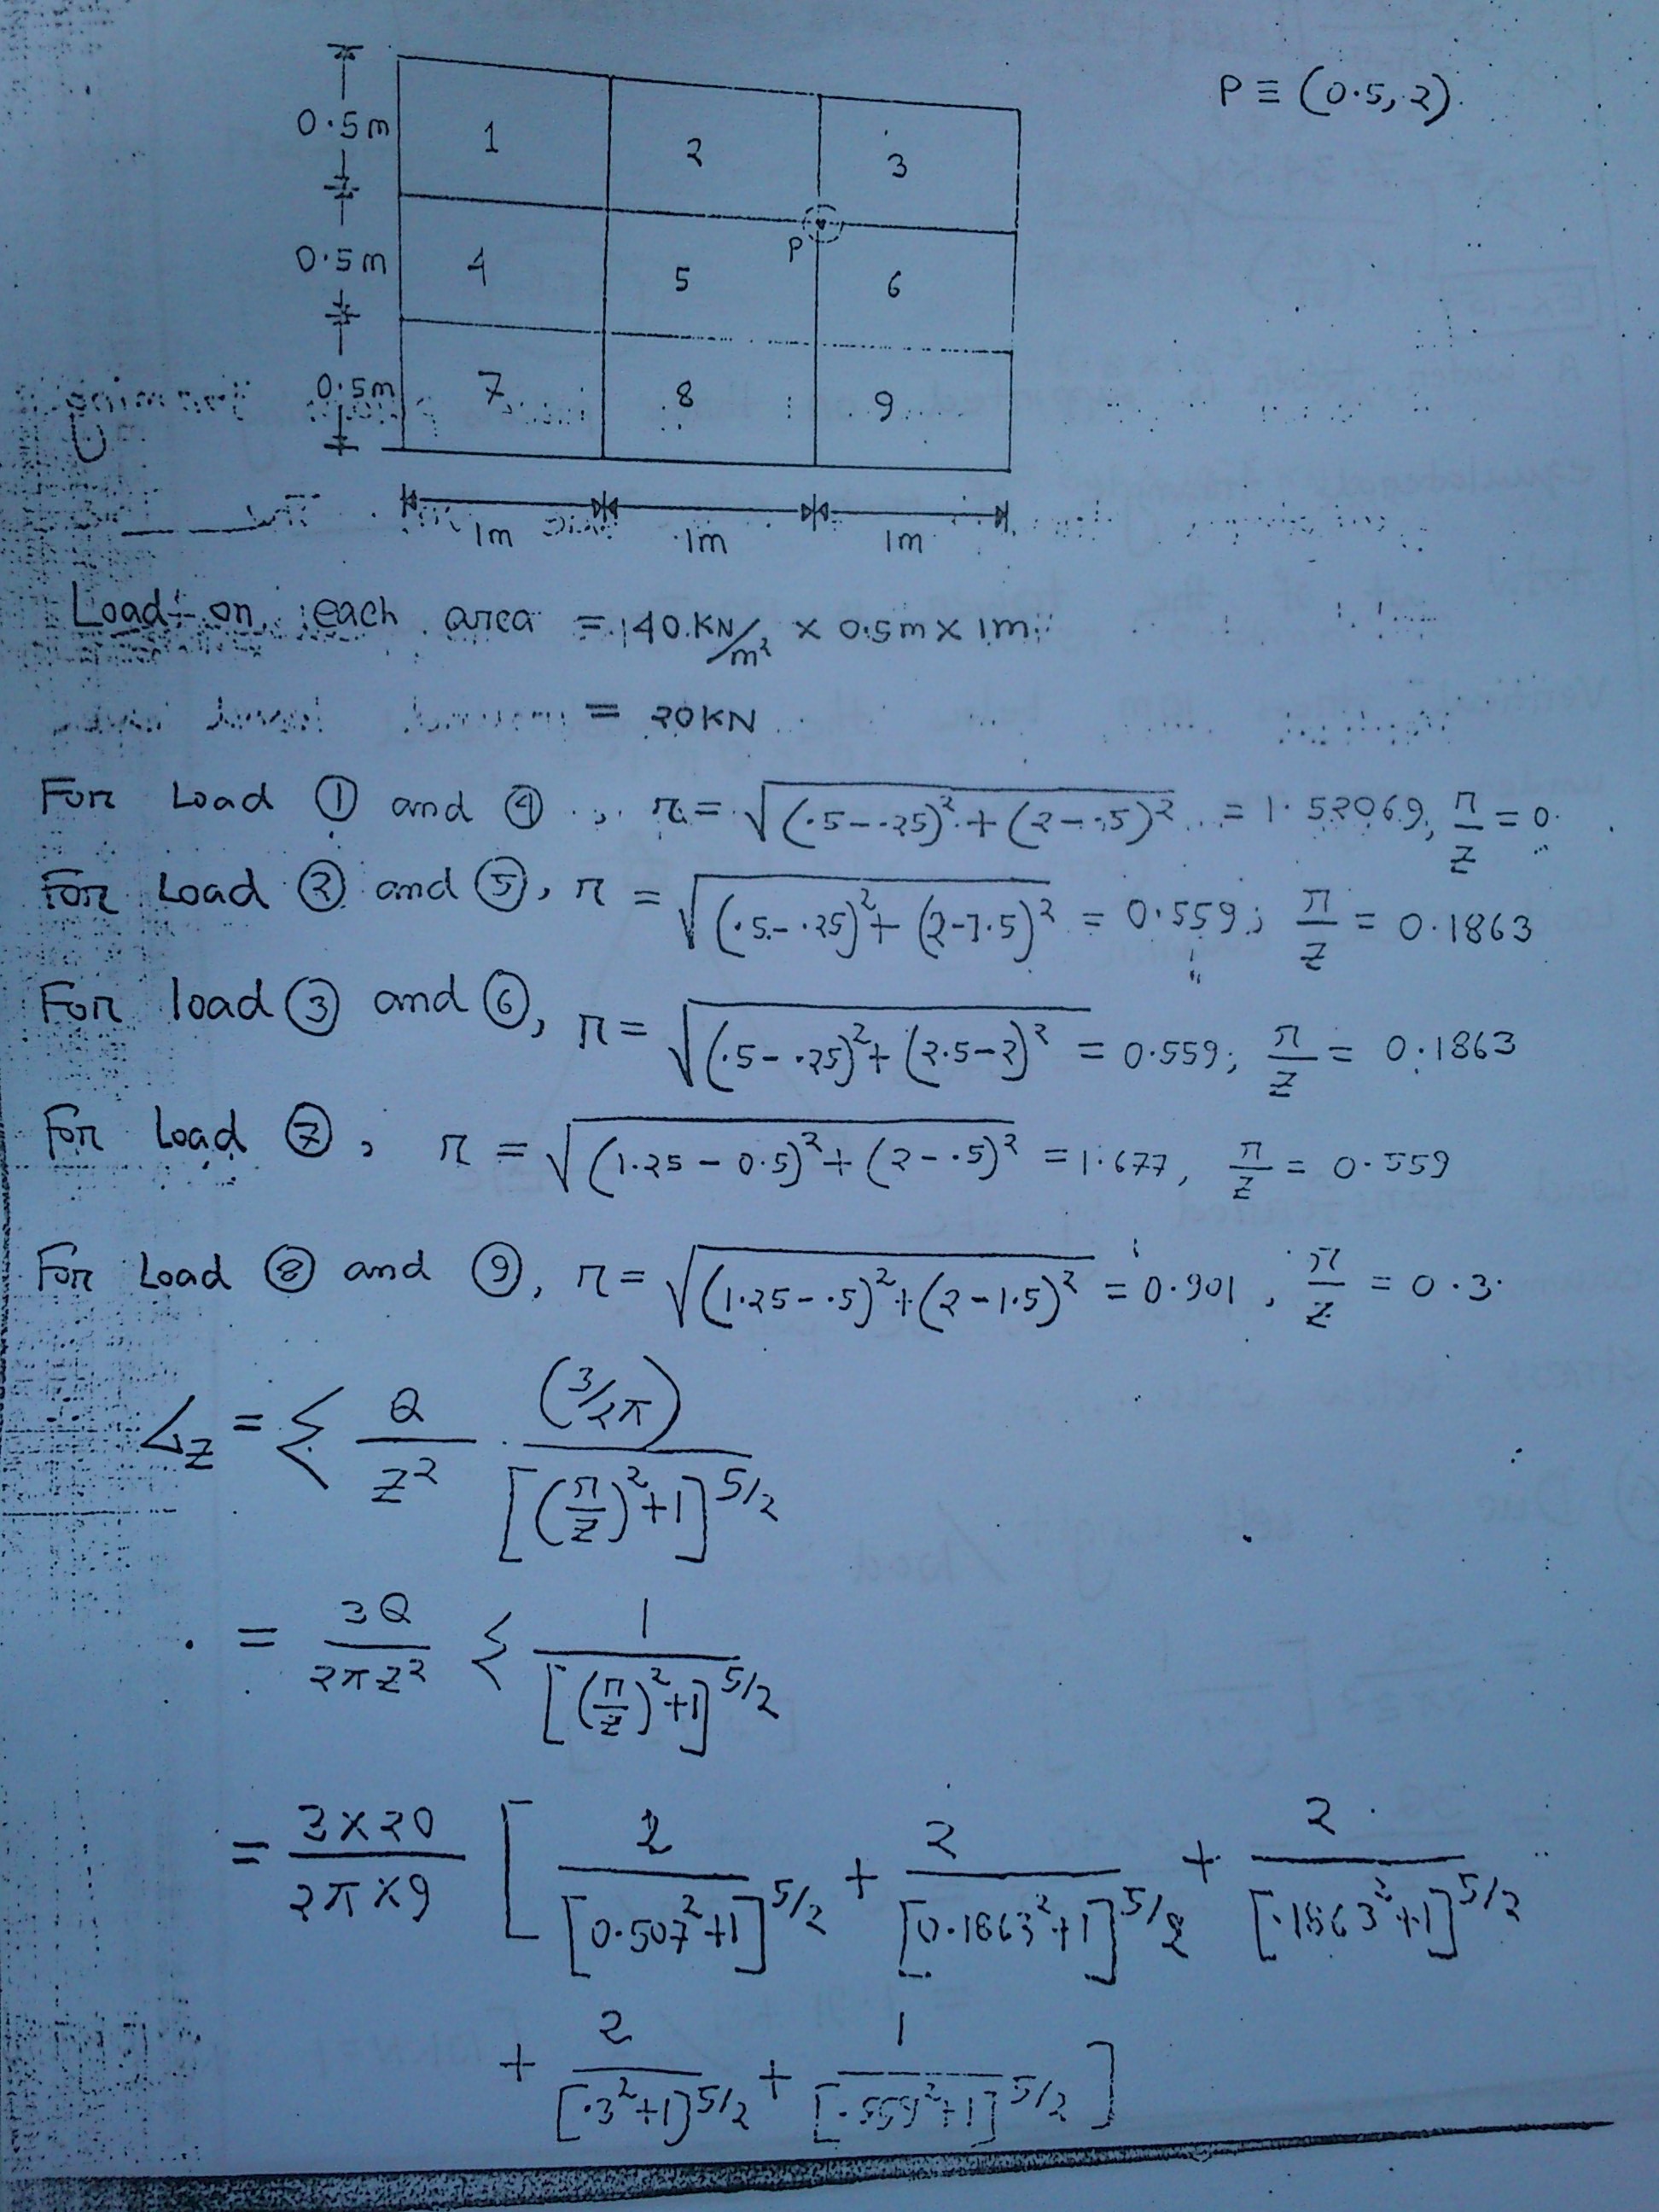 P ≡ (0.5, 2).
0.5m
1
2
3
P
0.5m
4
5
6
0.5m
7
8
9
1m
1m
1m
Load on each area = 40 KN/m² × 0.5m × 1m
= 20KN
For Load ① and ④, r = √(.5-.25)²+(2-.5)² = 1.52069, r/z = 0.
For Load ② and ⑤, r = √(.5-.25)²+(2-1.5)² = 0.559; r/z = 0.1863
For load ③ and ⑥, r = √(.5-.25)²+(2.5-2)² = 0.559; r/z = 0.1863
For Load ⑦, r = √(1.25-0.5)²+(2-.5)² = 1.677, r/z = 0.559
For Load ⑧ and ⑨, r = √(1.25-.5)²+(2-1.5)² = 0.901, r/z = 0.3
σz = Σ Q/z² · (3/2π)/[(r/z)²+1]^5/2
= 3Q/2πz² Σ 1/[(r/z)²+1]^5/2
= 3×20/2π×9 [ 2/[0.507²+1]^5/2 + 2/[0.1863²+1]^5/2 + 2/[.1863²+1]^5/2
+ 2/[.3²+1]^5/2 + 1/[.559²+1]^5/2 ]